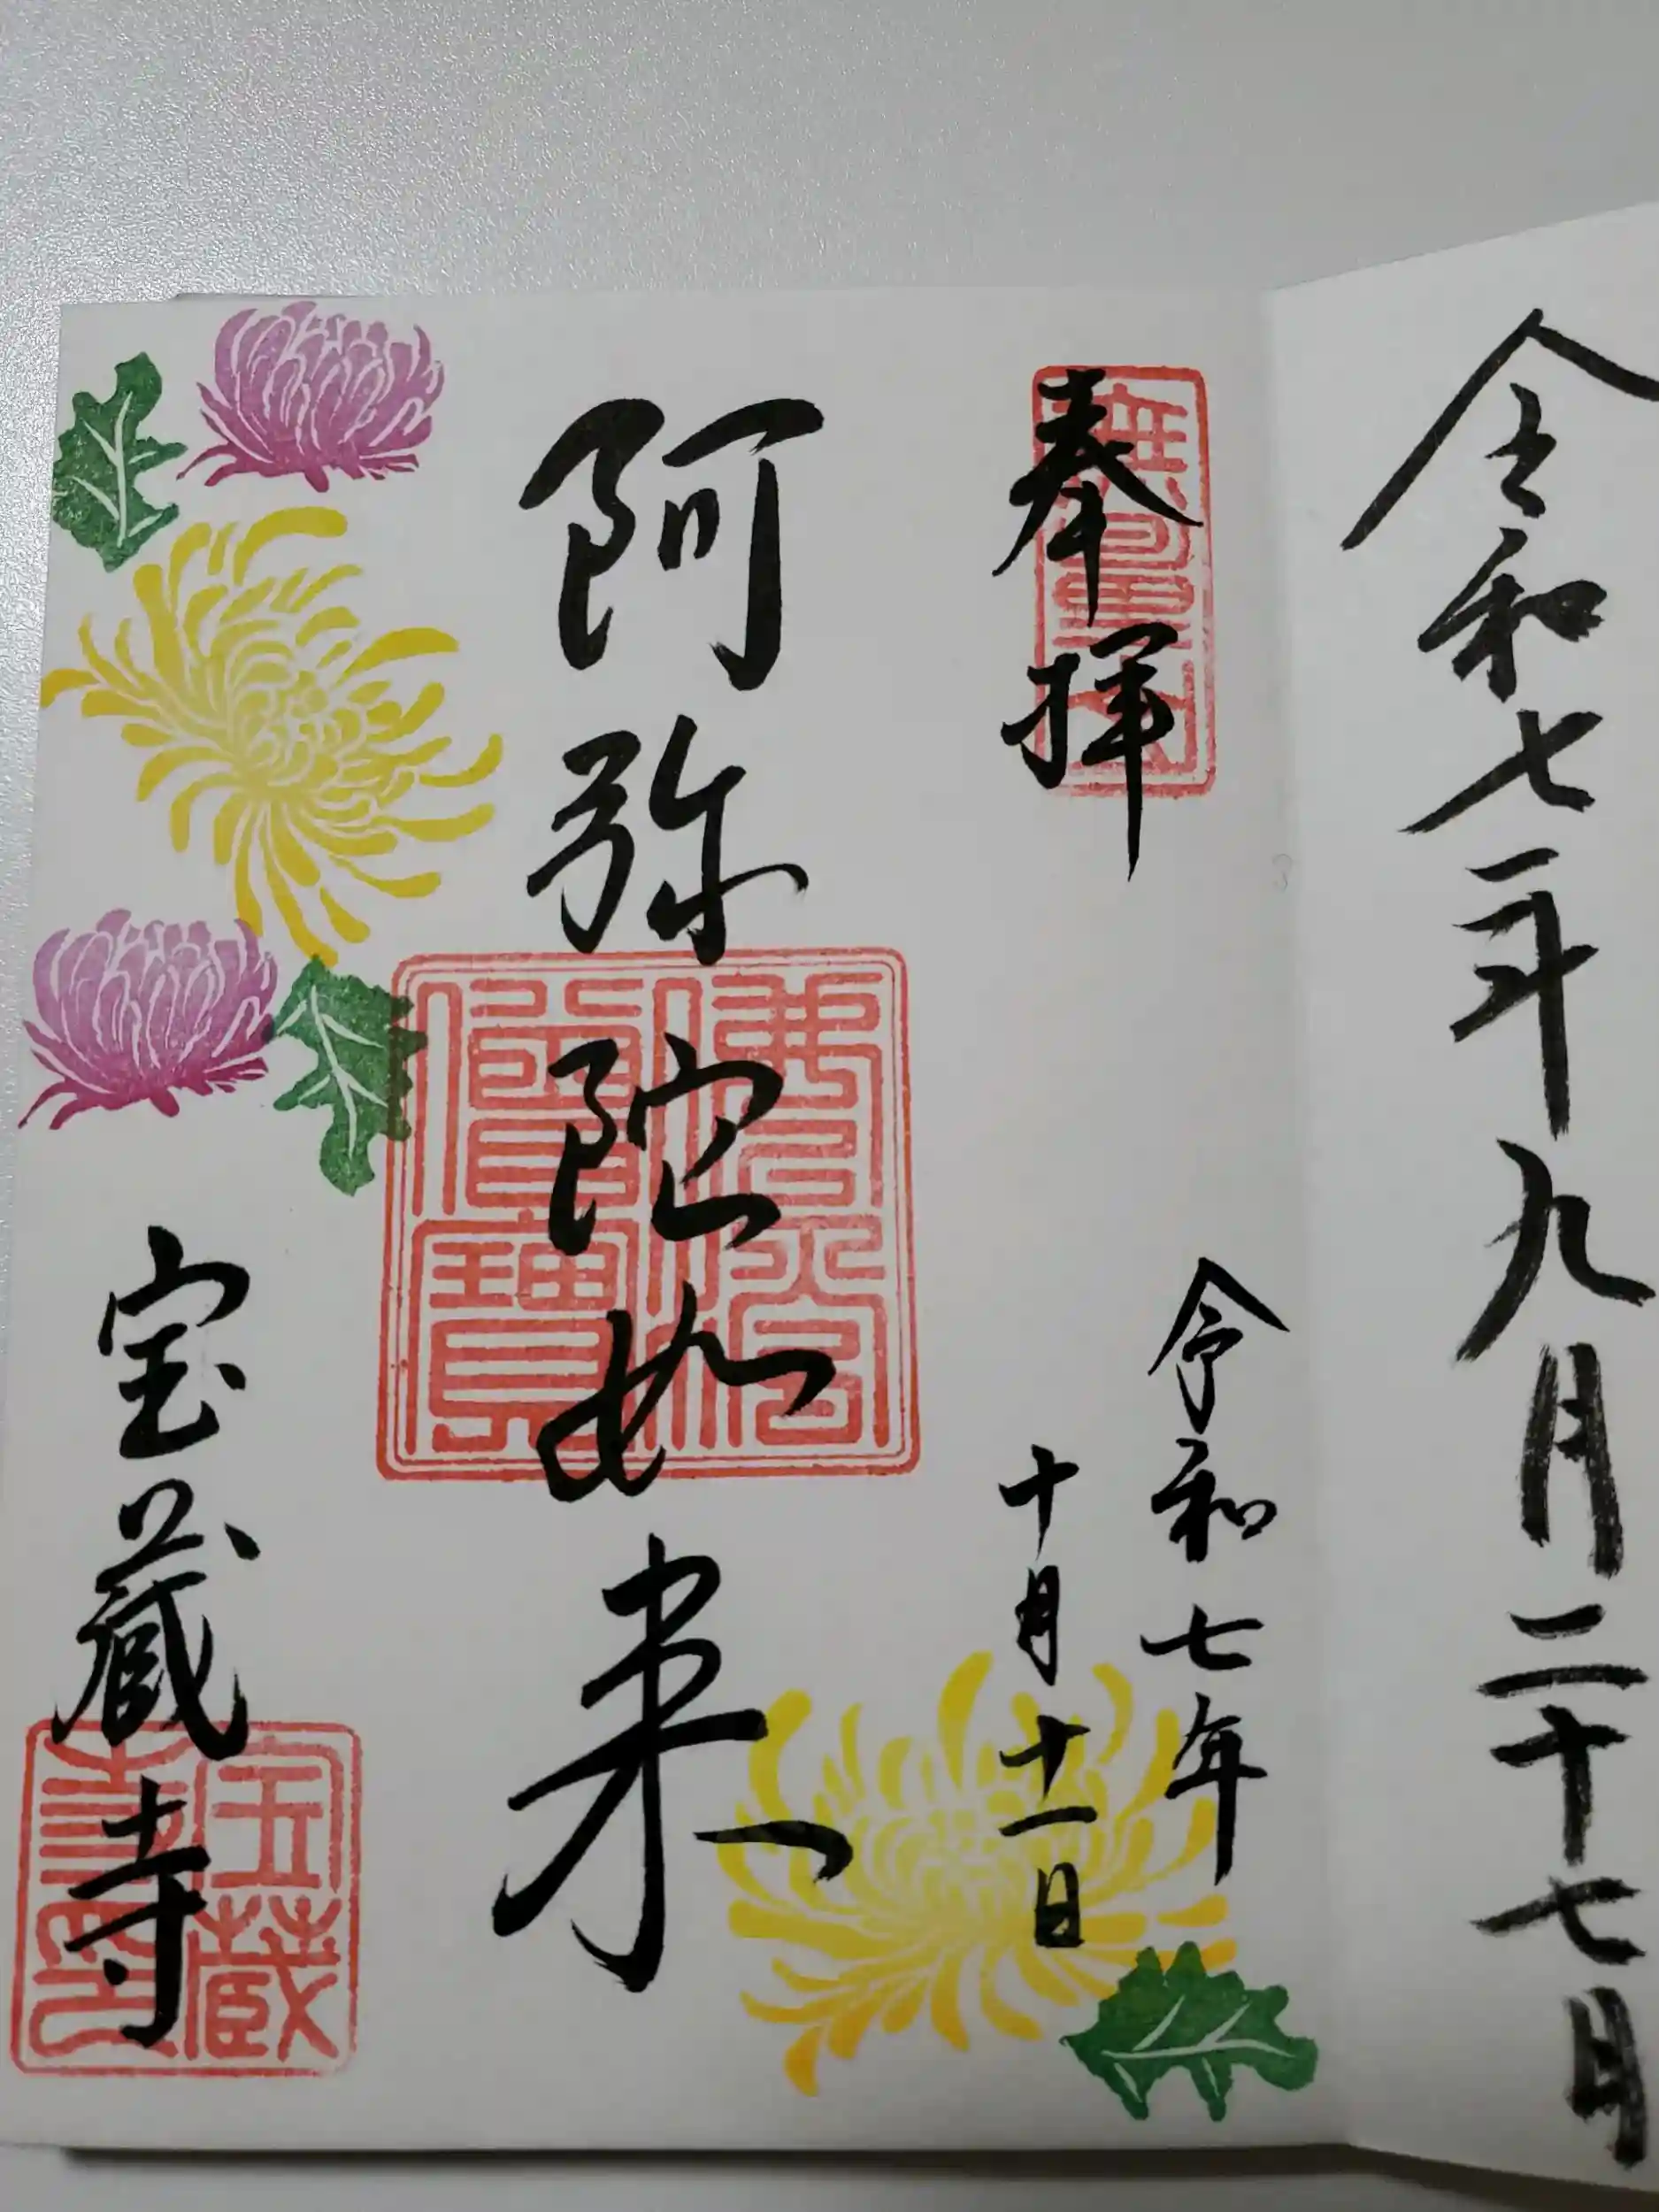 令和七年九月二十七日
奉拝
令和七年
十月十一日
阿弥陀如来
佛法僧寶
宝蔵寺